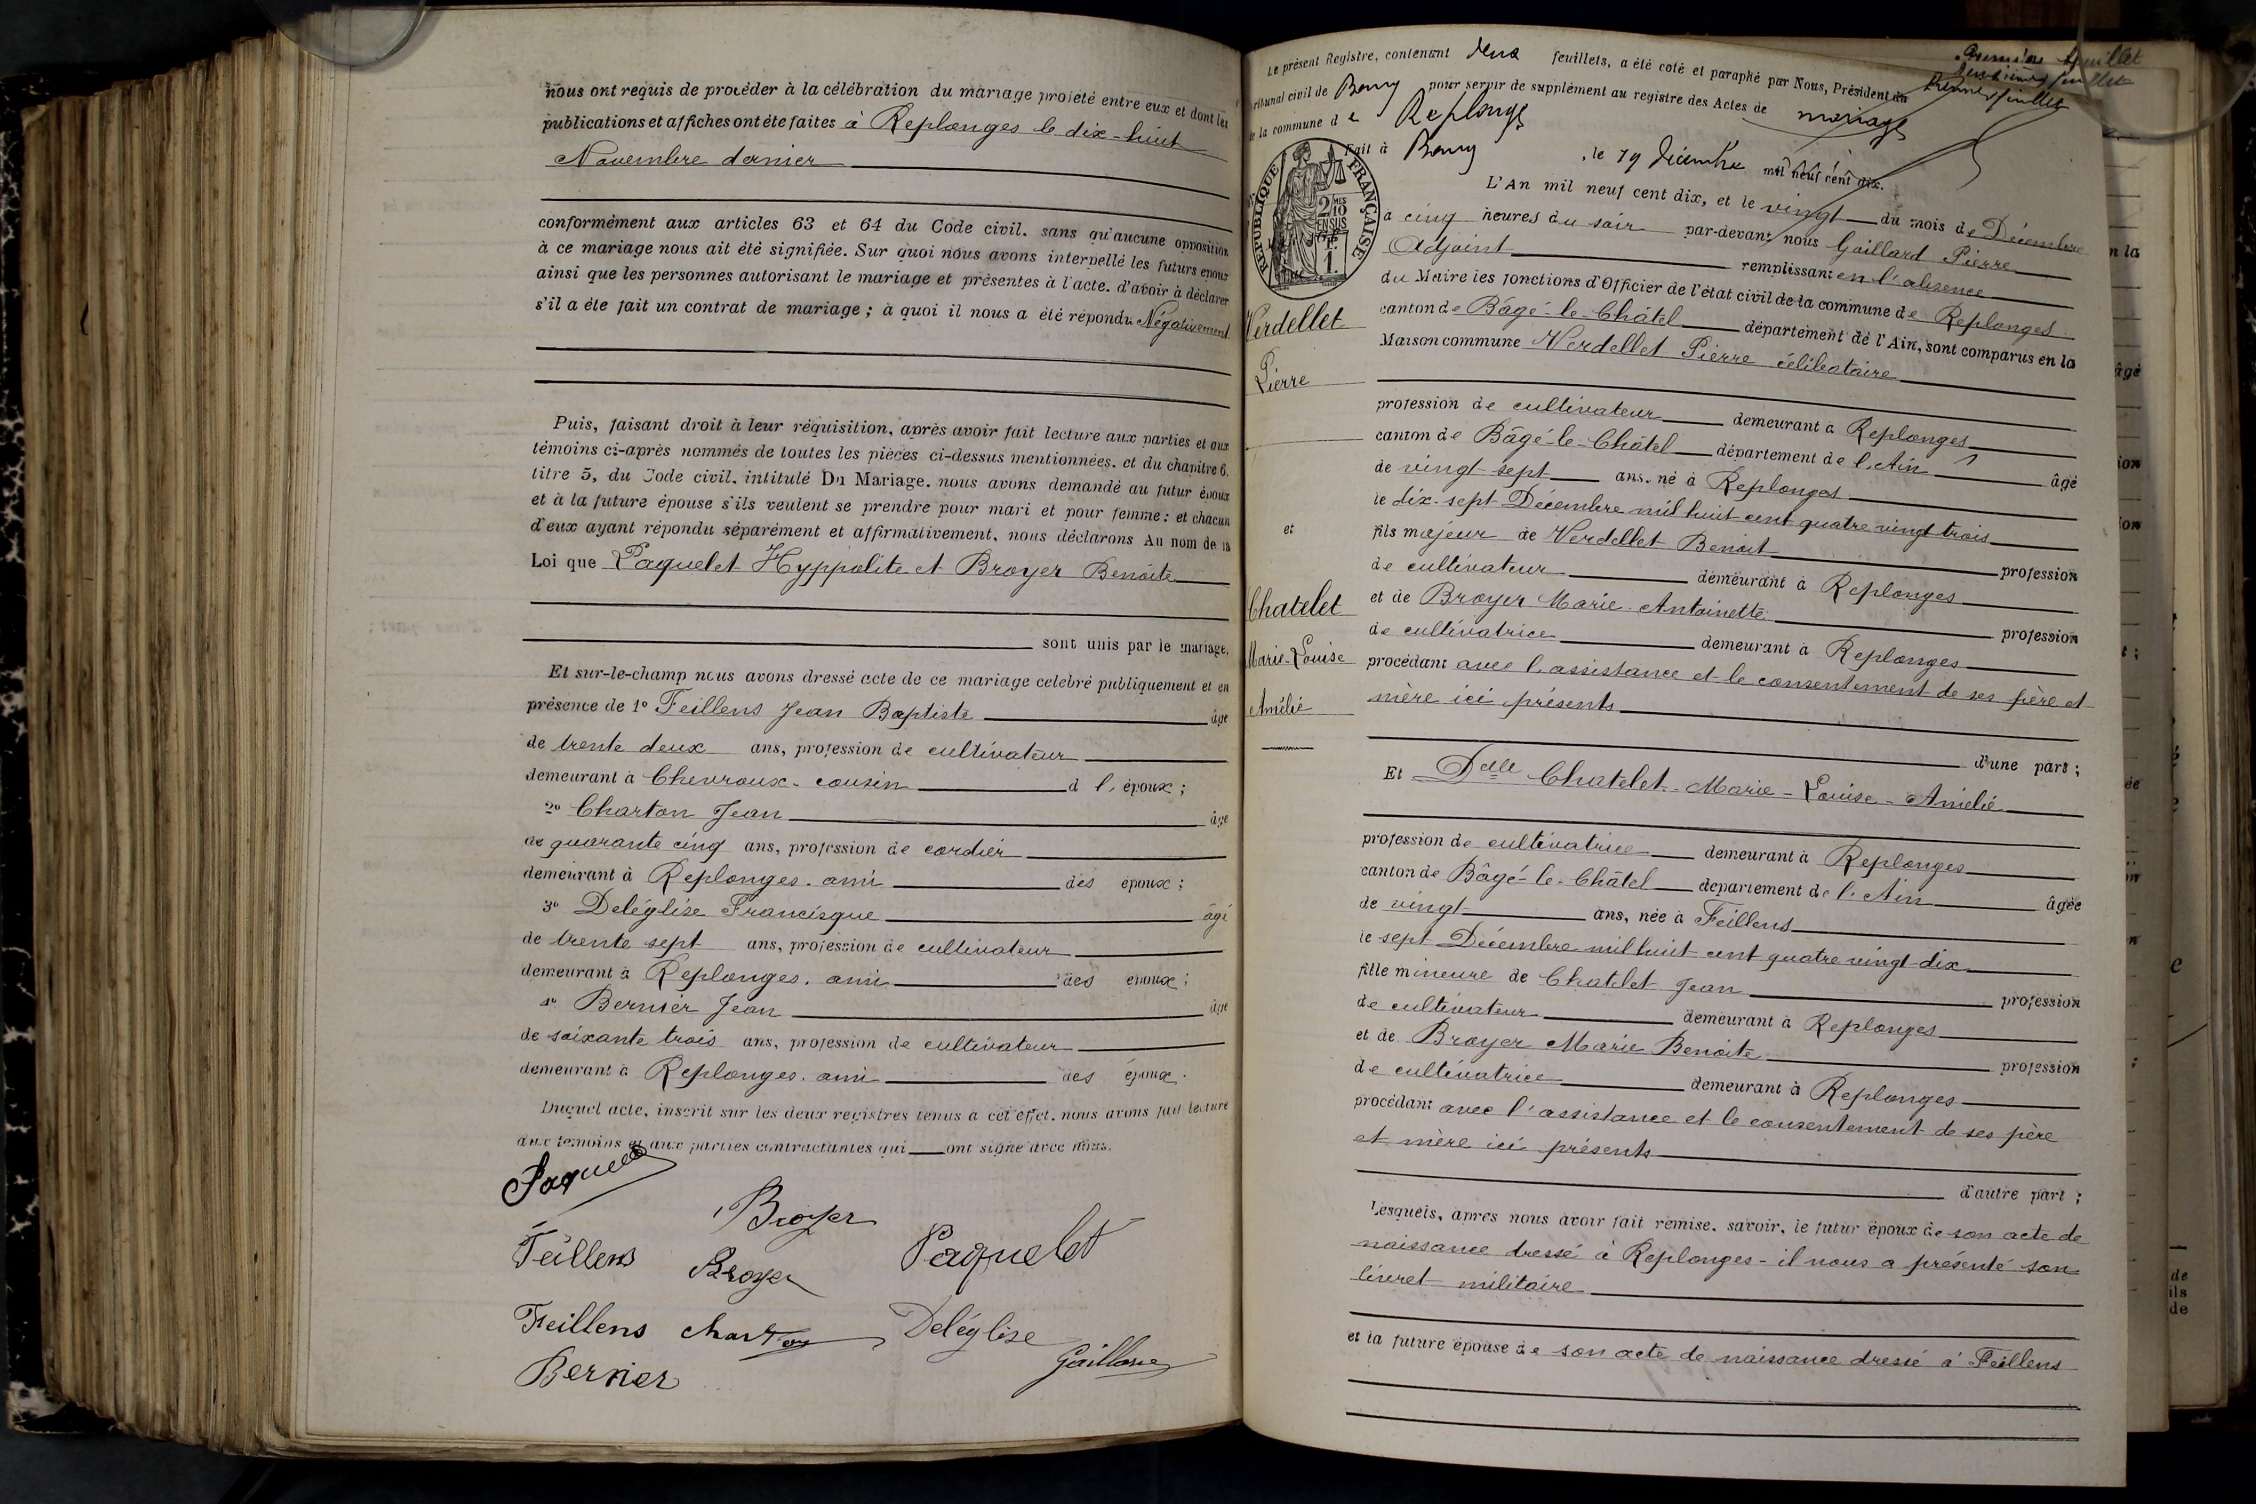 nous ont requis de procéder à la célébration du mariage projeté entre eux et dont les
publications et affiches ont été faites à Replonges le dix-huit
Novembre dernier
conformément aux articles 63 et 64 du Code civil, sans qu'aucune opposition
à ce mariage nous ait été signifiée. Sur quoi nous avons interpellé les futurs époux
ainsi que les personnes autorisant le mariage et présentes à l'acte, d'avoir à déclarer
s'il a été fait un contrat de mariage ; à quoi il nous a été répondu Négativement
Puis, faisant droit à leur réquisition, après avoir fait lecture aux parties et aux
témoins ci-après nommés de toutes les pièces ci-dessus mentionnées, et du chapitre 6,
titre 5, du Code civil, intitulé Du Mariage, nous avons demandé au futur époux
et à la future épouse s'ils veulent se prendre pour mari et pour femme ; et chacun
d'eux ayant répondu séparément et affirmativement, nous déclarons Au nom de la
Loi que Paquelet Hyppolite et Broyer Benoite
sont unis par le mariage.
Et sur-le-champ nous avons dressé acte de ce mariage célébré publiquement et en
présence de 1º Feillens Jean Baptiste âgé
de trente deux ans, profession de cultivateur
demeurant à Chevroux. cousin d l, époux ;
2º Charton Jean âgé
de quarante cinq ans, profession de cordier
demeurant à Replonges. ami des époux ;
3º Deléglise Francisque âgé
de trente sept ans, profession de cultivateur
demeurant à Replonges. ami des époux ;
4º Bernier Jean âgé
de soixante trois ans, profession de cultivateur
demeurant à Replonges. ami des époux.
Duquel acte, inscrit sur les deux registres tenus à cet effet, nous avons fait lecture
aux témoins et aux parties contractantes qui ont signé avec nous.
Paquelet
Broyer
Feillens Broyer Paquelet
Feillens Charton Deléglise
Bernier Gaillard
Le présent Registre, contenant deux feuillets, a été coté et paraphé par Nous, Président du
tribunal civil de Bourg pour servir de supplément au registre des Actes de mariage
de la commune de Replonges
Fait à Bourg, le 19 Décembre mil neuf cent dix.
Premier feuillet
RÉPUBLIQUE FRANÇAISE
2/10 EN SUS
1F.
L'An mil neuf cent dix, et le vingt du mois de Décembre
à cinq heures du soir par-devant nous Gaillard Pierre
Adjoint remplissant en l'absence
du Maire les fonctions d'Officier de l'état civil de la commune de Replonges
canton de Bâgé-le-Châtel département de l'Ain, sont comparus en la
Maison commune Verdellet Pierre célibataire
profession de cultivateur demeurant à Replonges
canton de Bâgé-le-Châtel département de l'Ain âgé
de vingt-sept ans, né à Replonges
le dix-sept Décembre mil huit cent quatre vingt trois
fils majeur de Verdellet Benoit profession
de cultivateur demeurant à Replonges
et de Broyer Marie-Antoinette profession
de cultivatrice demeurant à Replonges
procédant avec l'assistance et le consentement de ses père et
mère ici présents
d'une part ;
Et Delle Chatelet-Marie-Louise-Amélie
profession de cultivatrice demeurant à Replonges
canton de Bâgé-le-Châtel département de l'Ain âgée
de vingt ans, née à Feillens
le sept Décembre mil huit cent quatre vingt dix
fille mineure de Chatelet Jean profession
de cultivateur demeurant à Replonges
et de Broyer Marie Benoite profession
de cultivatrice demeurant à Replonges
procédant avec l'assistance et le consentement de ses père
et mère ici présents
d'autre part ;
Lesquels, après nous avoir fait remise, savoir, le futur époux de son acte de
naissance dressé à Replonges - il nous a présenté son
livret militaire
et la future épouse de son acte de naissance dressé à Feillens
Verdellet
Pierre
et
Chatelet
Marie-Louise
Amélie